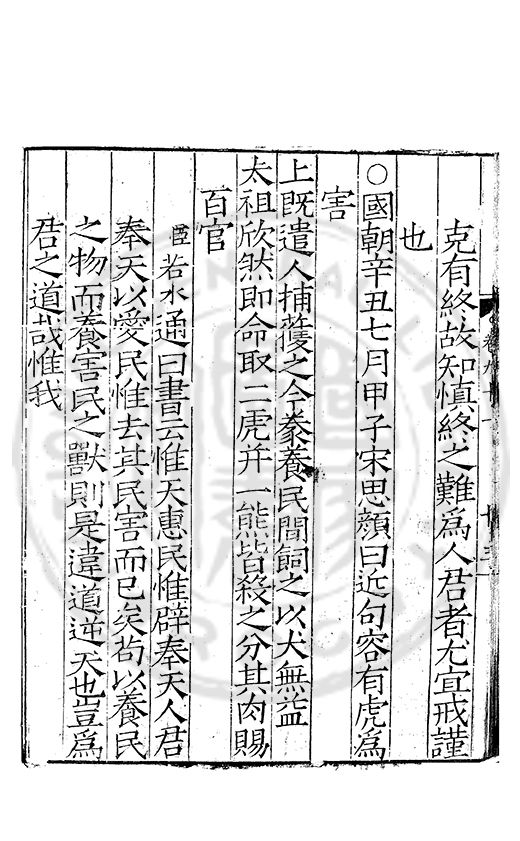 克有終故知慎終之難爲人君者尤宜戒謹
也
○國朝辛丑七月甲子宋思顔曰近句容有虎爲
害
上既遣人捕獲之今豢養民間飼之以犬無益
太祖欣然即命取二虎并一熊皆殺之分其肉賜
百官
臣若水通曰書云惟天惠民惟辟奉天人君
奉天以愛民惟去其民害而已矣茍以養民
之物而養害民之獸則是違道逆天也豈爲
君之道哉惟我